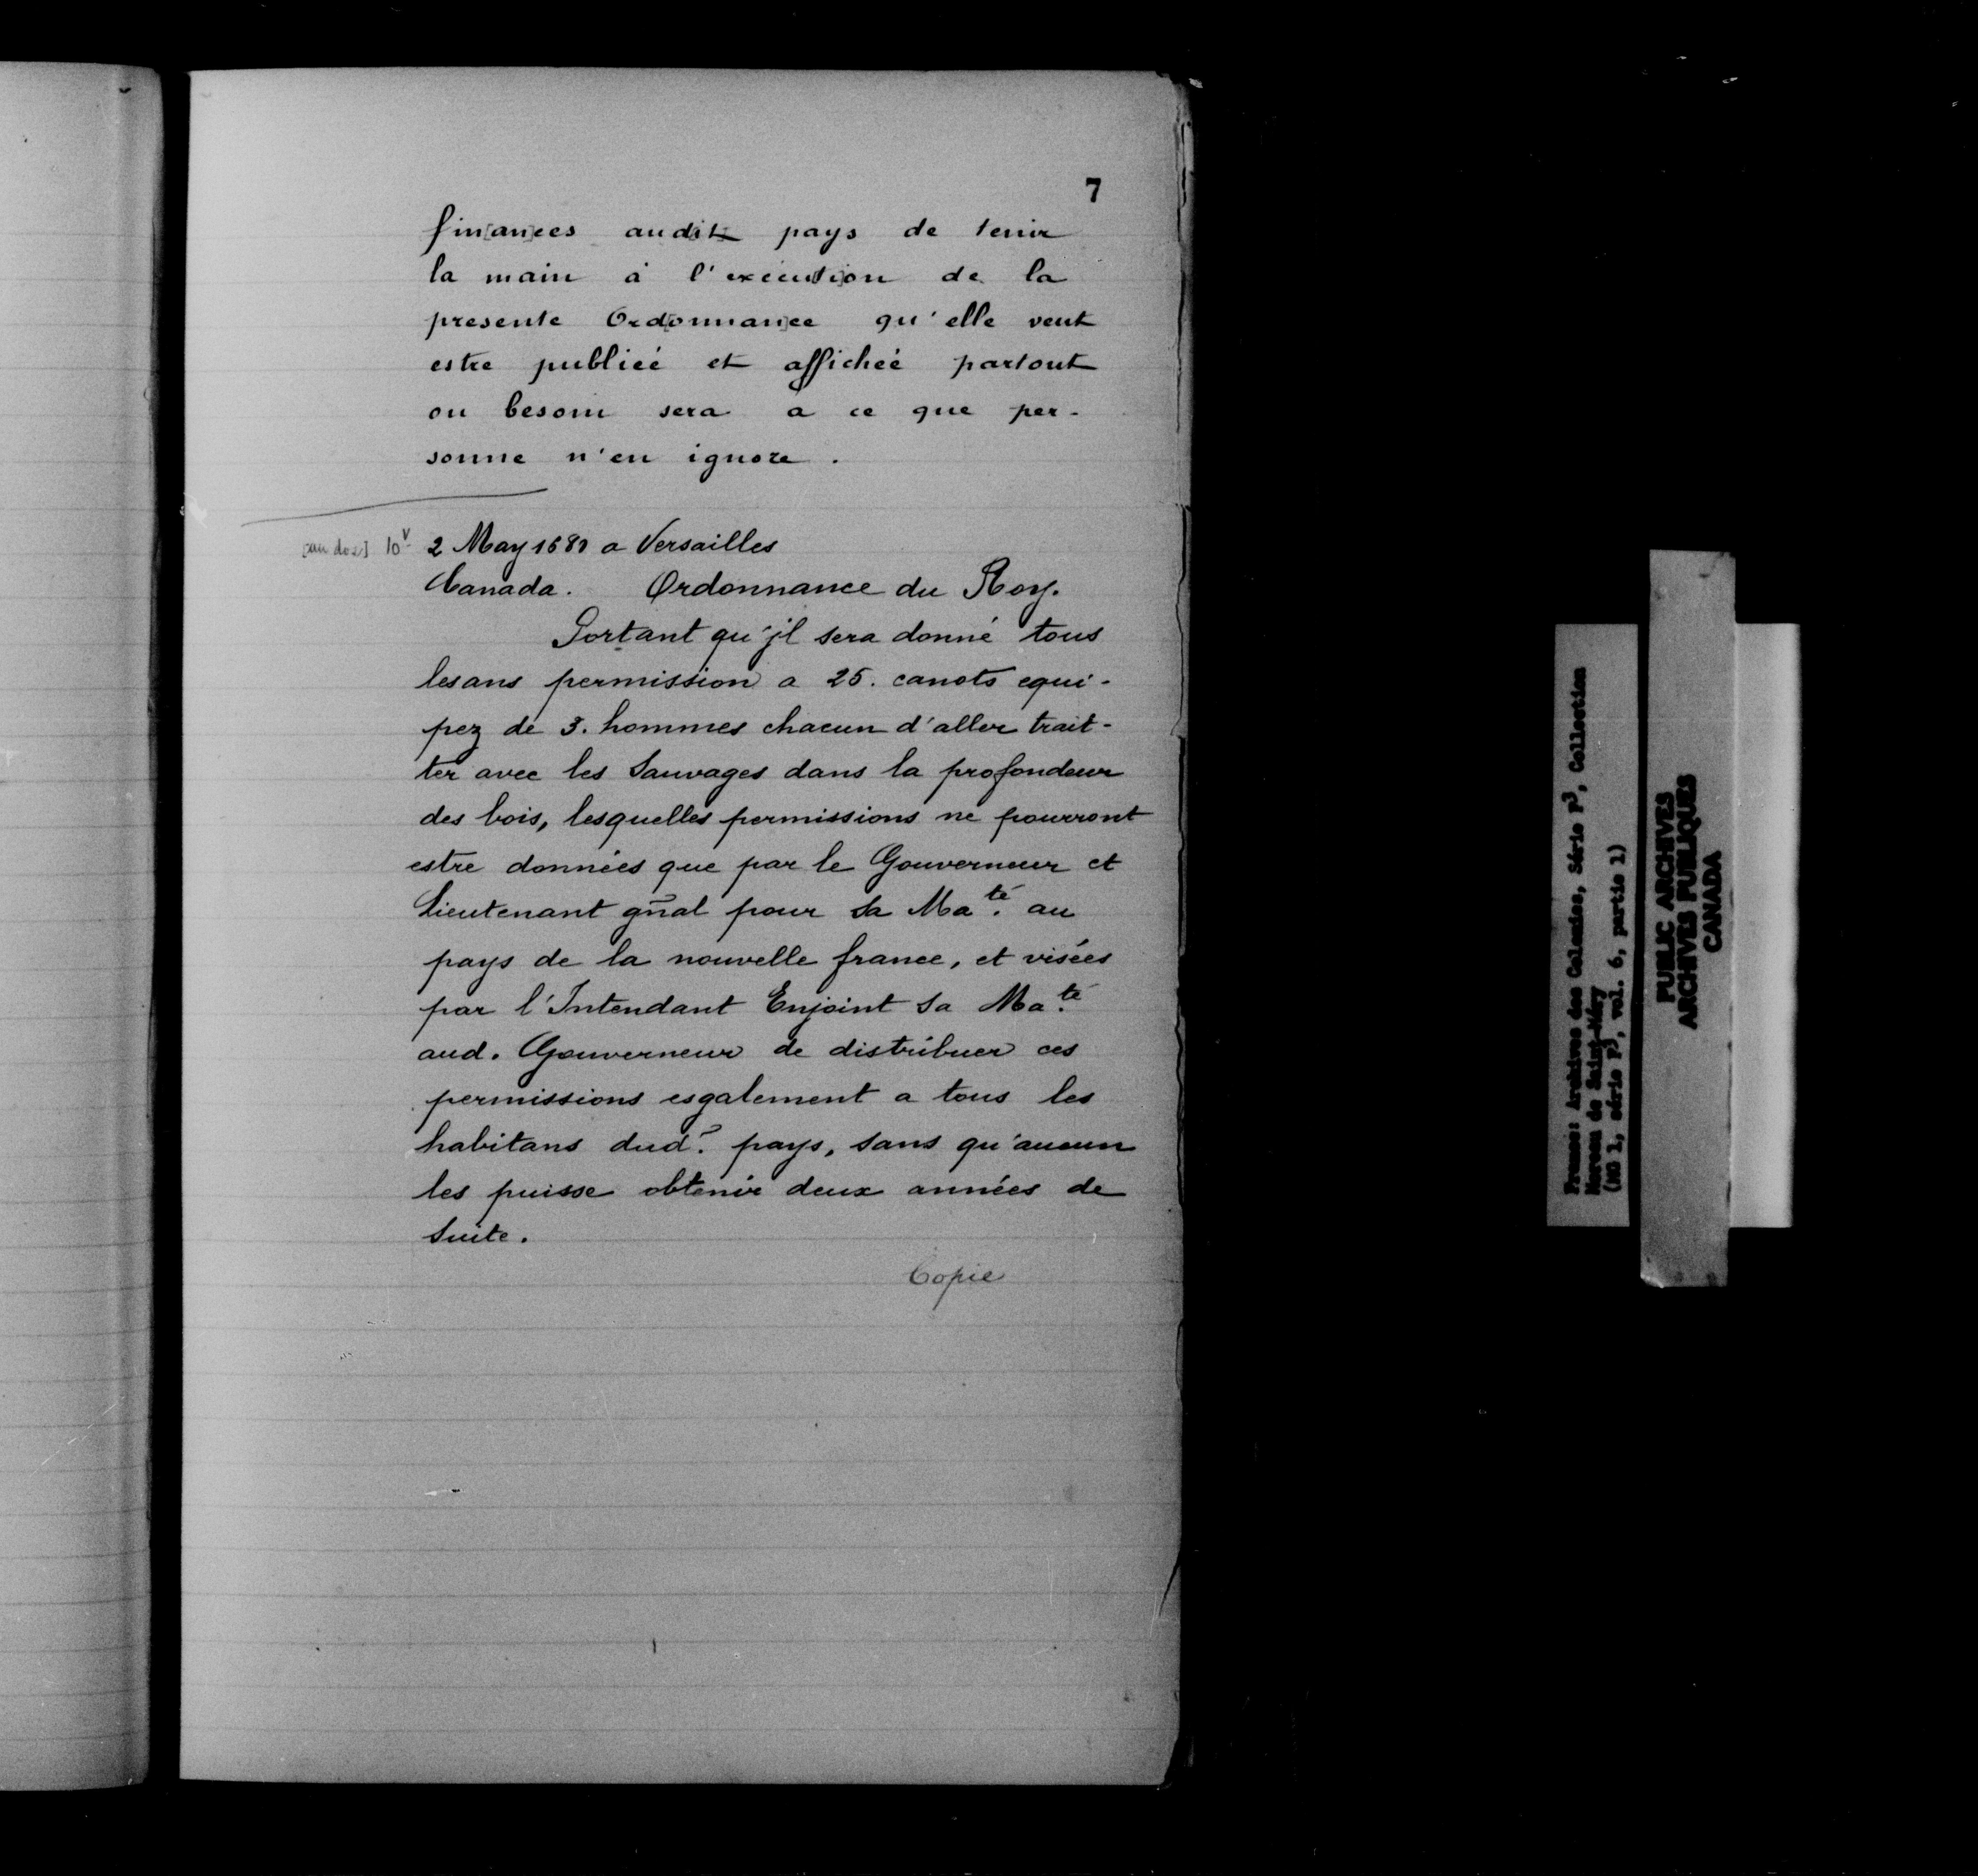 7
fin[an]ces audit pays de tenir
la main à l'execut[i]on de la
presente Ord[onnan]ce qu'elle veut
estre publieé et afficheé partout
ou besoin sera a ce que per-
sonne n'en ignore.
[au dos] 10v 2 May 1681 a Versailles
Canada. Ordonnance du Roy.
Portant qu'jl sera donné tous
lesans permission a 25. canots equi-
pez de 3. hommes chacun d'aller trait-
ter avec les Sauvages dans la profondeur
des bois, lesquelles permissions ne pourront
estre données que par le Gouverneur et
Lieutenant gñal pour sa Ma.té au
pays de la nouvelle france, et visées
par l'Intendant Enjoint sa Ma.té
aud. Gouverneur de distribuer ces
permissions esgalement a tous les
habitans dud. pays, sans qu'aucun
les puisse obtenir deux années de
Suite.
Copie
France: Archives des Colonies, Série F3, Collection
Moreau de Saint-Méry
(MG 1, série F3, vol. 6, partie 1)
PUBLIC ARCHIVES
ARCHIVES PUBLIQUES
CANADA